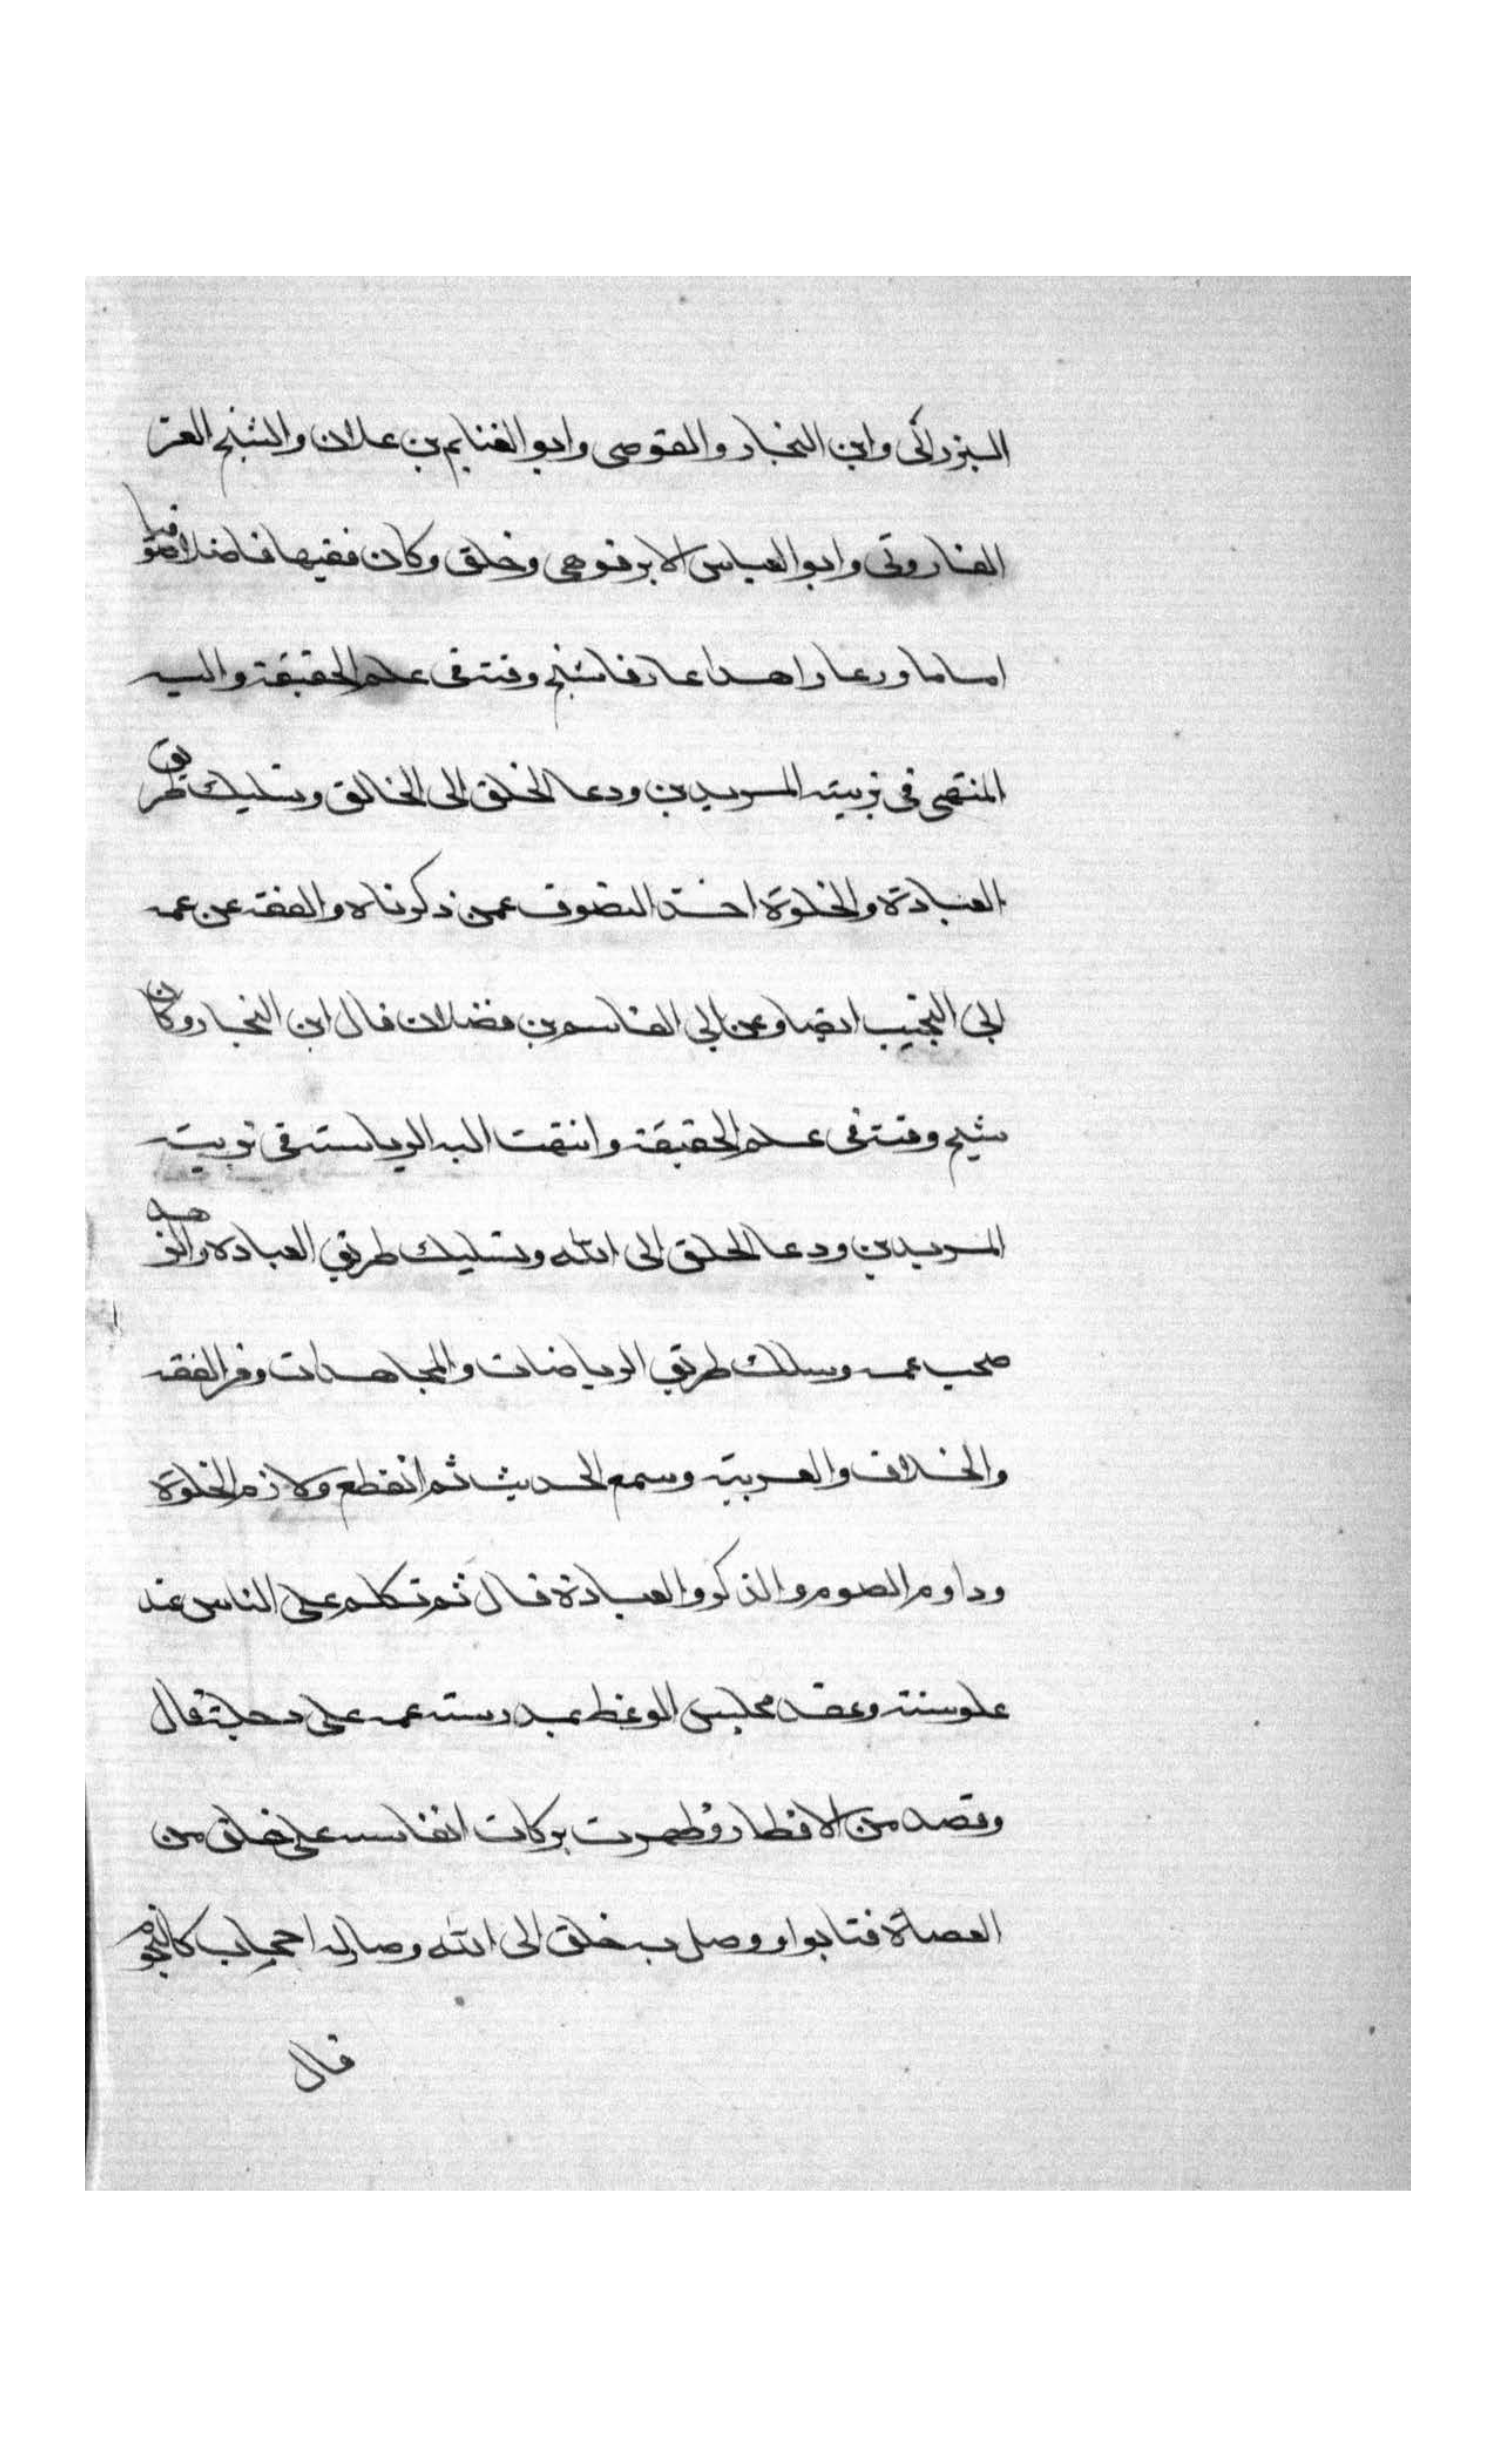 البزرالي وابن النجار والقوصى وابو الغنايم بن علان والشيخ العز
الفاروثى وابو العباس الابرقوهى وخلق وكان فقيها فاضلا صوفيا
اماما ورعا زاهدا عارفا شيخ وقته فى علم الحقيقة واليه
المنتهى فى تربيته المريدين ودعا الخلق الى الخالق وتسليك طريق
العبادة والخلوة اخذ التصوف عمن ذكرناه والفقه عن عمه
ابى النجيب ايضا وعن ابى القاسم بن فضلان قال ابن النجار وكان
شيخ وقته فى علم الحقيقة وانتهت اليه الرياسته فى تربيته
المريدين ودعا الخلق الى الله وتسليك طريق العباده والزهد
صحب عمه وسلك طريق الرياضات والمجاهدات وقرا الفقه
والخلاف والعربية وسمع الحديث ثم انقطع ولازم الخلوة
وداوم الصوم والذكر والعبادة قال ثم تكلم على الناس عند
علو سنه وعقد مجلس الوعظ بمدرسته عمه على دجلة قال
وقصد من الاقطار وظهرت بركات انفاسه على خلق من
العصاة فتابوا ووصل به خلق الى الله وصار له اصحاب كالنجوم
قال